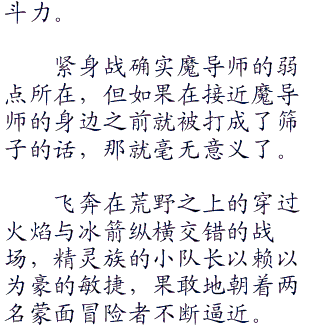 斗力。
紧身战确实魔导师的弱
点所在，但如果在接近魔导
师的身边之前就被打成了筛
子的话，那就毫无意义了。
飞奔在荒野之上的穿过
火焰与冰箭纵横交错的战
场，精灵族的小队长以赖以
为豪的敏捷，果敢地朝着两
名蒙面冒险者不断逼近。